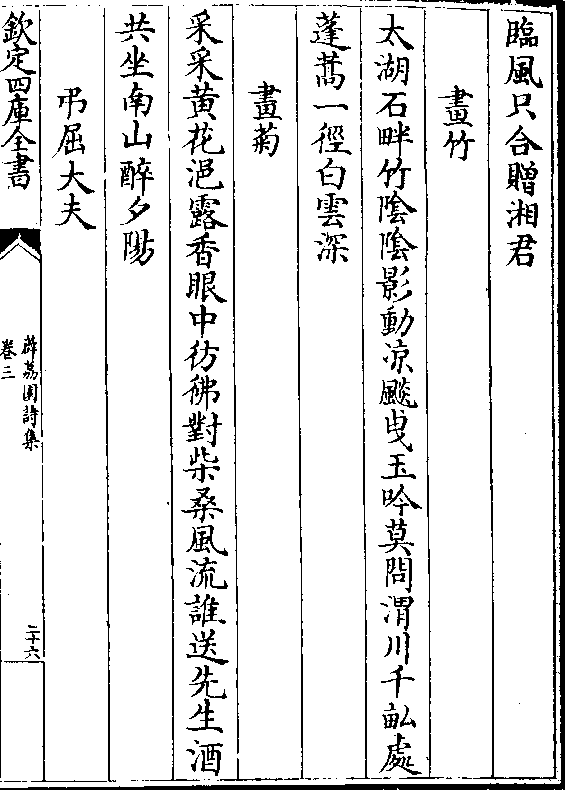 臨風只合贈湘君
畫竹
太湖石畔竹陰陰影動凉颸曵玉吟莫問渭川千畆處
蓬蒿一徑白雲深
畫菊
采采黄花浥露香眼中彷彿對柴桑風流誰送先生酒
共坐南山醉夕陽
弔屈大夫
欽定四庫全書
薜荔園詩集
卷三
二十六